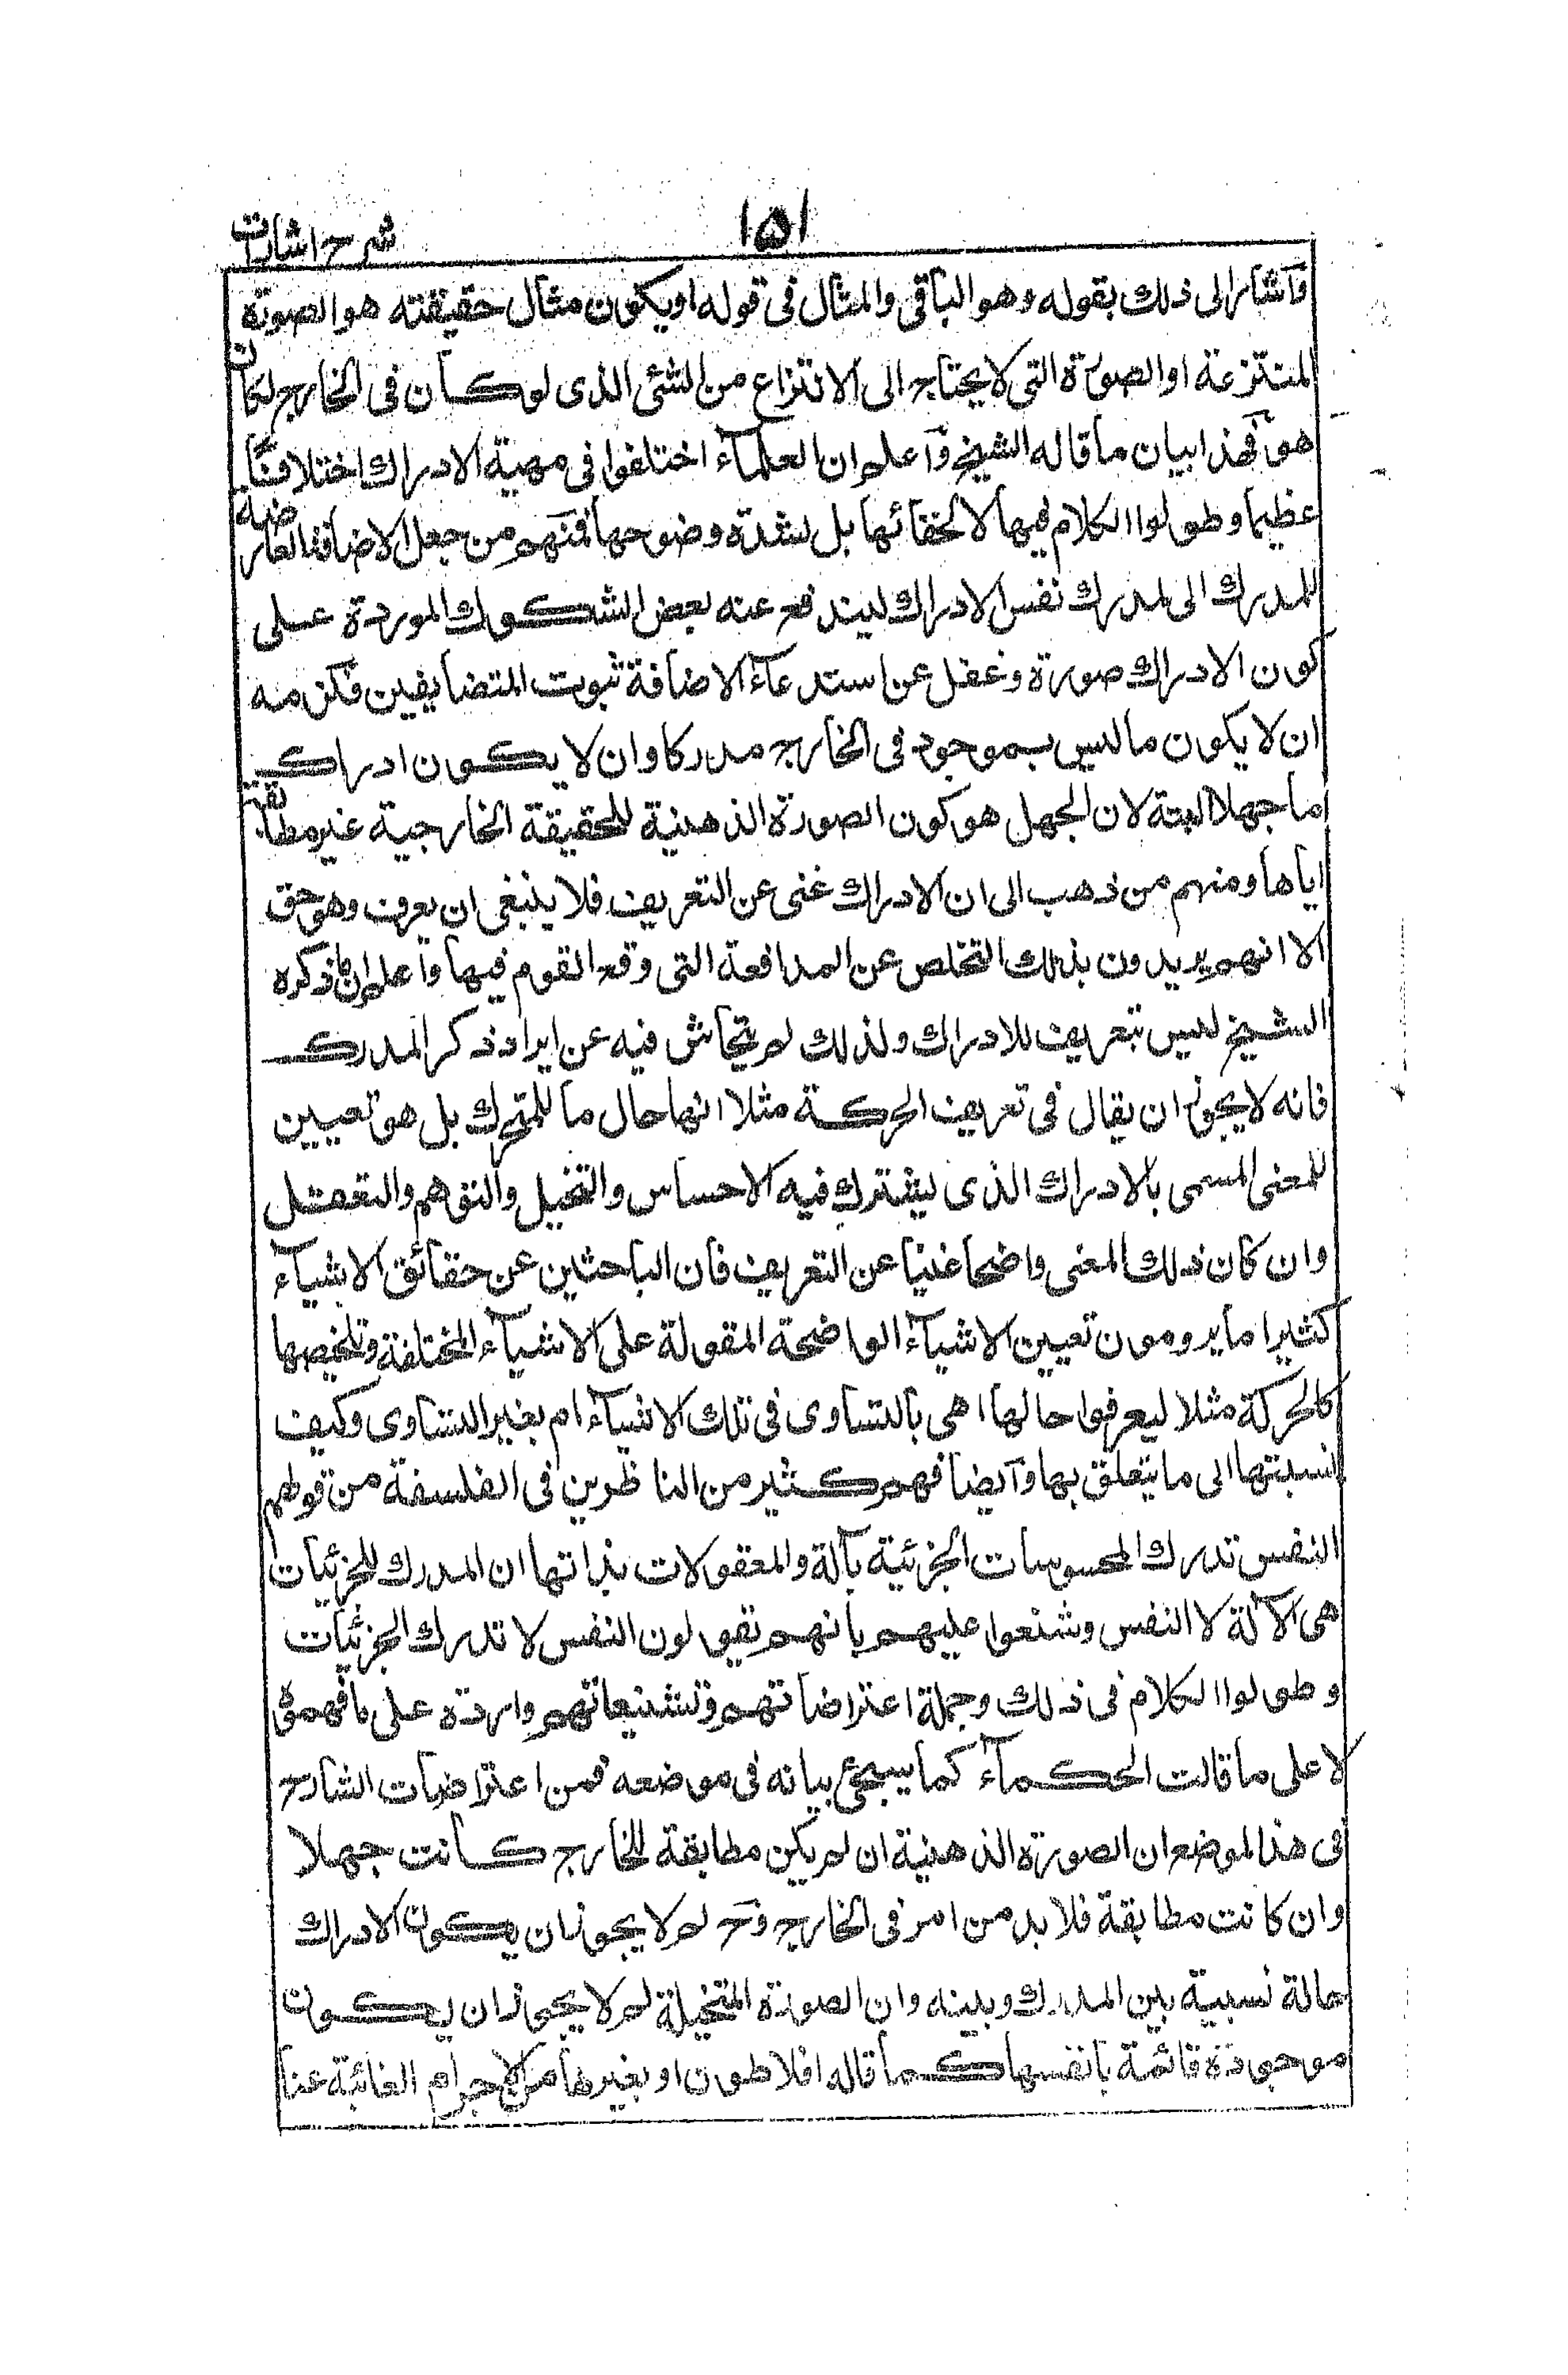 ١٥١
شرح اشارات
وآشار الى ذلك بقوله وهو الباقي والمثال فى قوله او يكون مثال حقيقته هو الصورة
المنتزعة او الصورة التى لا يحتاج الى الانتزاع من الشئ الذى لو كان فى الخارج لكان
هو فهذا بيان ما قاله الشيخ وآعلم ان العلمآء اختلفوا فى مهية الادراك اختلافا
عظيما وطولوا الكلام فيها لا لخفائها بل لشدة وضوحها فمنهم من جعل الاضافة العارضة
للمدرك الى المدرك نفس الادراك ليندفع عنه بعض الشكوك الموردة على
كون الادراك صورة وغفل عن استدعآء الاضافة ثبوت المتضايفين فلزمه
ان لا يكون ما ليس بموجود فى الخارج مدركا وان لا يكون ادراك
ما جهلا البتة لان الجهل هو كون الصورة الذهنية للحقيقة الخارجية غير مطابقة
اياها ومنهم من ذهب الى ان الادراك غنى عن التعريف فلا ينبغى ان يعرف وهو حق
الا انهم يريدون بذلك التخلص عن المدافعة التى وقع القوم فيها وآعلم ان ما ذكره
الشيخ ليس بتعريف للادراك ولذلك لم يتحاش فيه عن ايراد ذكر المدرك
فانه لا يجوز ان يقال فى تعريف الحركة مثلا انها حال ما للمتحرك بل هو تعيين
للمعنى المسمى بالادراك الذى يشترك فيه الاحساس والتخيل والتوهم والتعقل
وان كان ذلك المعنى واضحا غنيا عن التعريف فان الباحثين عن حقائق الاشيآء
كثيرا ما يرومون تعيين الاشيآء الواضحة المقولة على الاشيآء المختلفة وتلخيصها
كالحركة مثلا ليعرفوا حالها اهى بالتساوى فى تلك الاشيآء ام بغير التساوى وكيف
نسبتها الى ما يتعلق بها وآيضا فهم كثير من الناظرين فى الفلسفة من قولهم
النفس تدرك المحسوسات الجزئية بآلة والمعقولات بذاتها ان المدرك للجزئيات
هى الآلة لا النفس وشنعوا عليهم بانهم يقولون النفس لا تدرك الجزئيات
وطولوا الكلام فى ذلك وجملة اعتراضاتهم وتشنيعاتهم واردة على ما فهموه
لا على ما قالت الحكمآء كما سيجئ بيانه فى موضعه فمن اعتراضات الشارح
فى هذا الموضع ان الصورة الذهنية ان لم يكن مطابقة للخارج كانت جهلا
وان كانت مطابقة فلا بد من امر فى الخارج وح لم لا يجوز ان يكون الادراك
حالة نسبية بين المدرك وبينه وان الصورة المتخيلة لم لا يجوز ان يكون
موجودة قائمة بانفسها كما قاله افلاطون او بغيرها من الاجرام الغائبة عنا